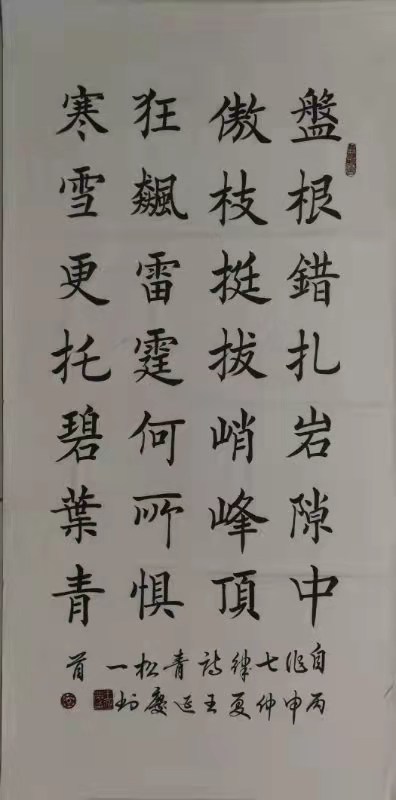 盤根錯扎岩隙中
傲枝挺拔峭峰頂
狂飆雷霆何所惧
寒雪更托碧葉青
自作七律诗青松一首
丙申仲夏王延慶书